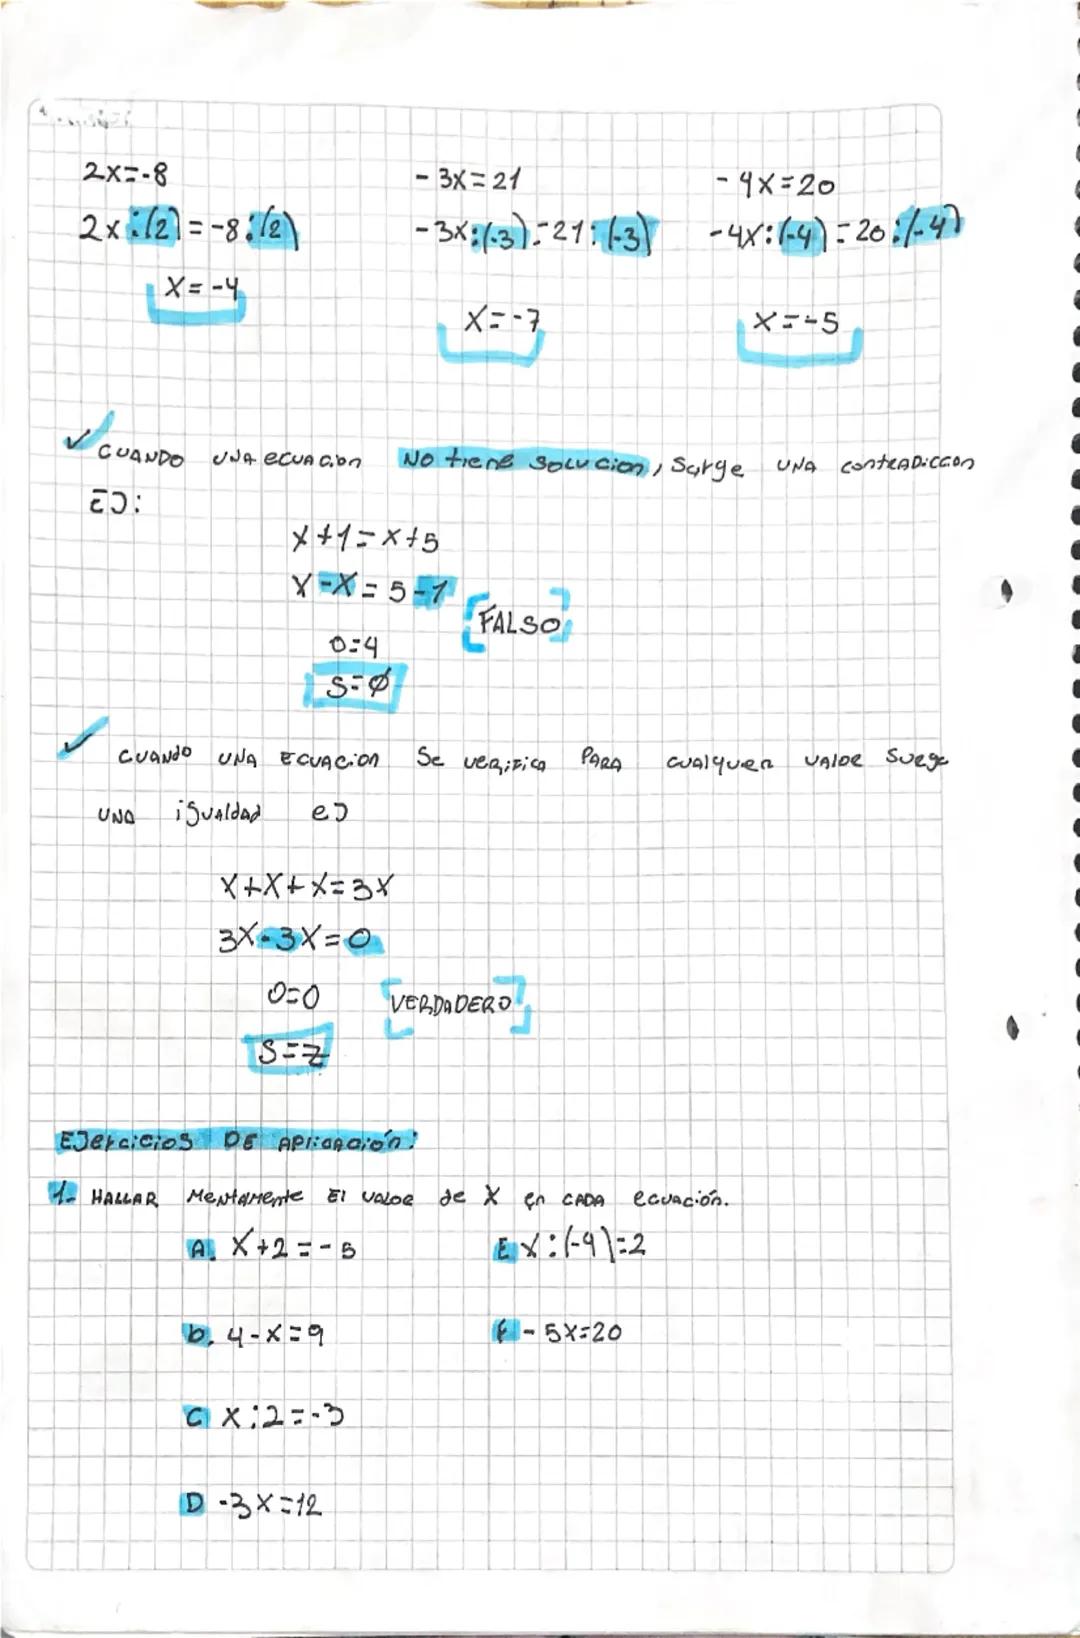 2x=-8
2x:(2)=-8:(2)
x=-4
-3x=21
-3x:(-3)=21:(-3)
x=-7
-4x=20
-4x:(-4)=20:(-4)
x=-5
✓ CUANDO UNA ECUACION NO tiene SOLUCION, Surge UNA CONTRADICCON
EJ:
x+1=x+5
x-x=5-1
0=4
[FALSO]
S=∅
✓ CUANdO UNA ECUACION Se VERIFICA PARA CUALQUIER VALOR SURGE
UNA iGUALdAd eJ
x+x+x=3x
3x-3x=0
0=0 [VERDADERO]
S=Z
EJERCICIOS DE APLICACIÓN:
1- HALLAR MENTAMENTE El VALOR de X en CADA ECUACIÓN.
A. x+2=-5
E x:(-4)=2
b. 4-x=9
F -5x=20
C x:2=-3
D -3x=12